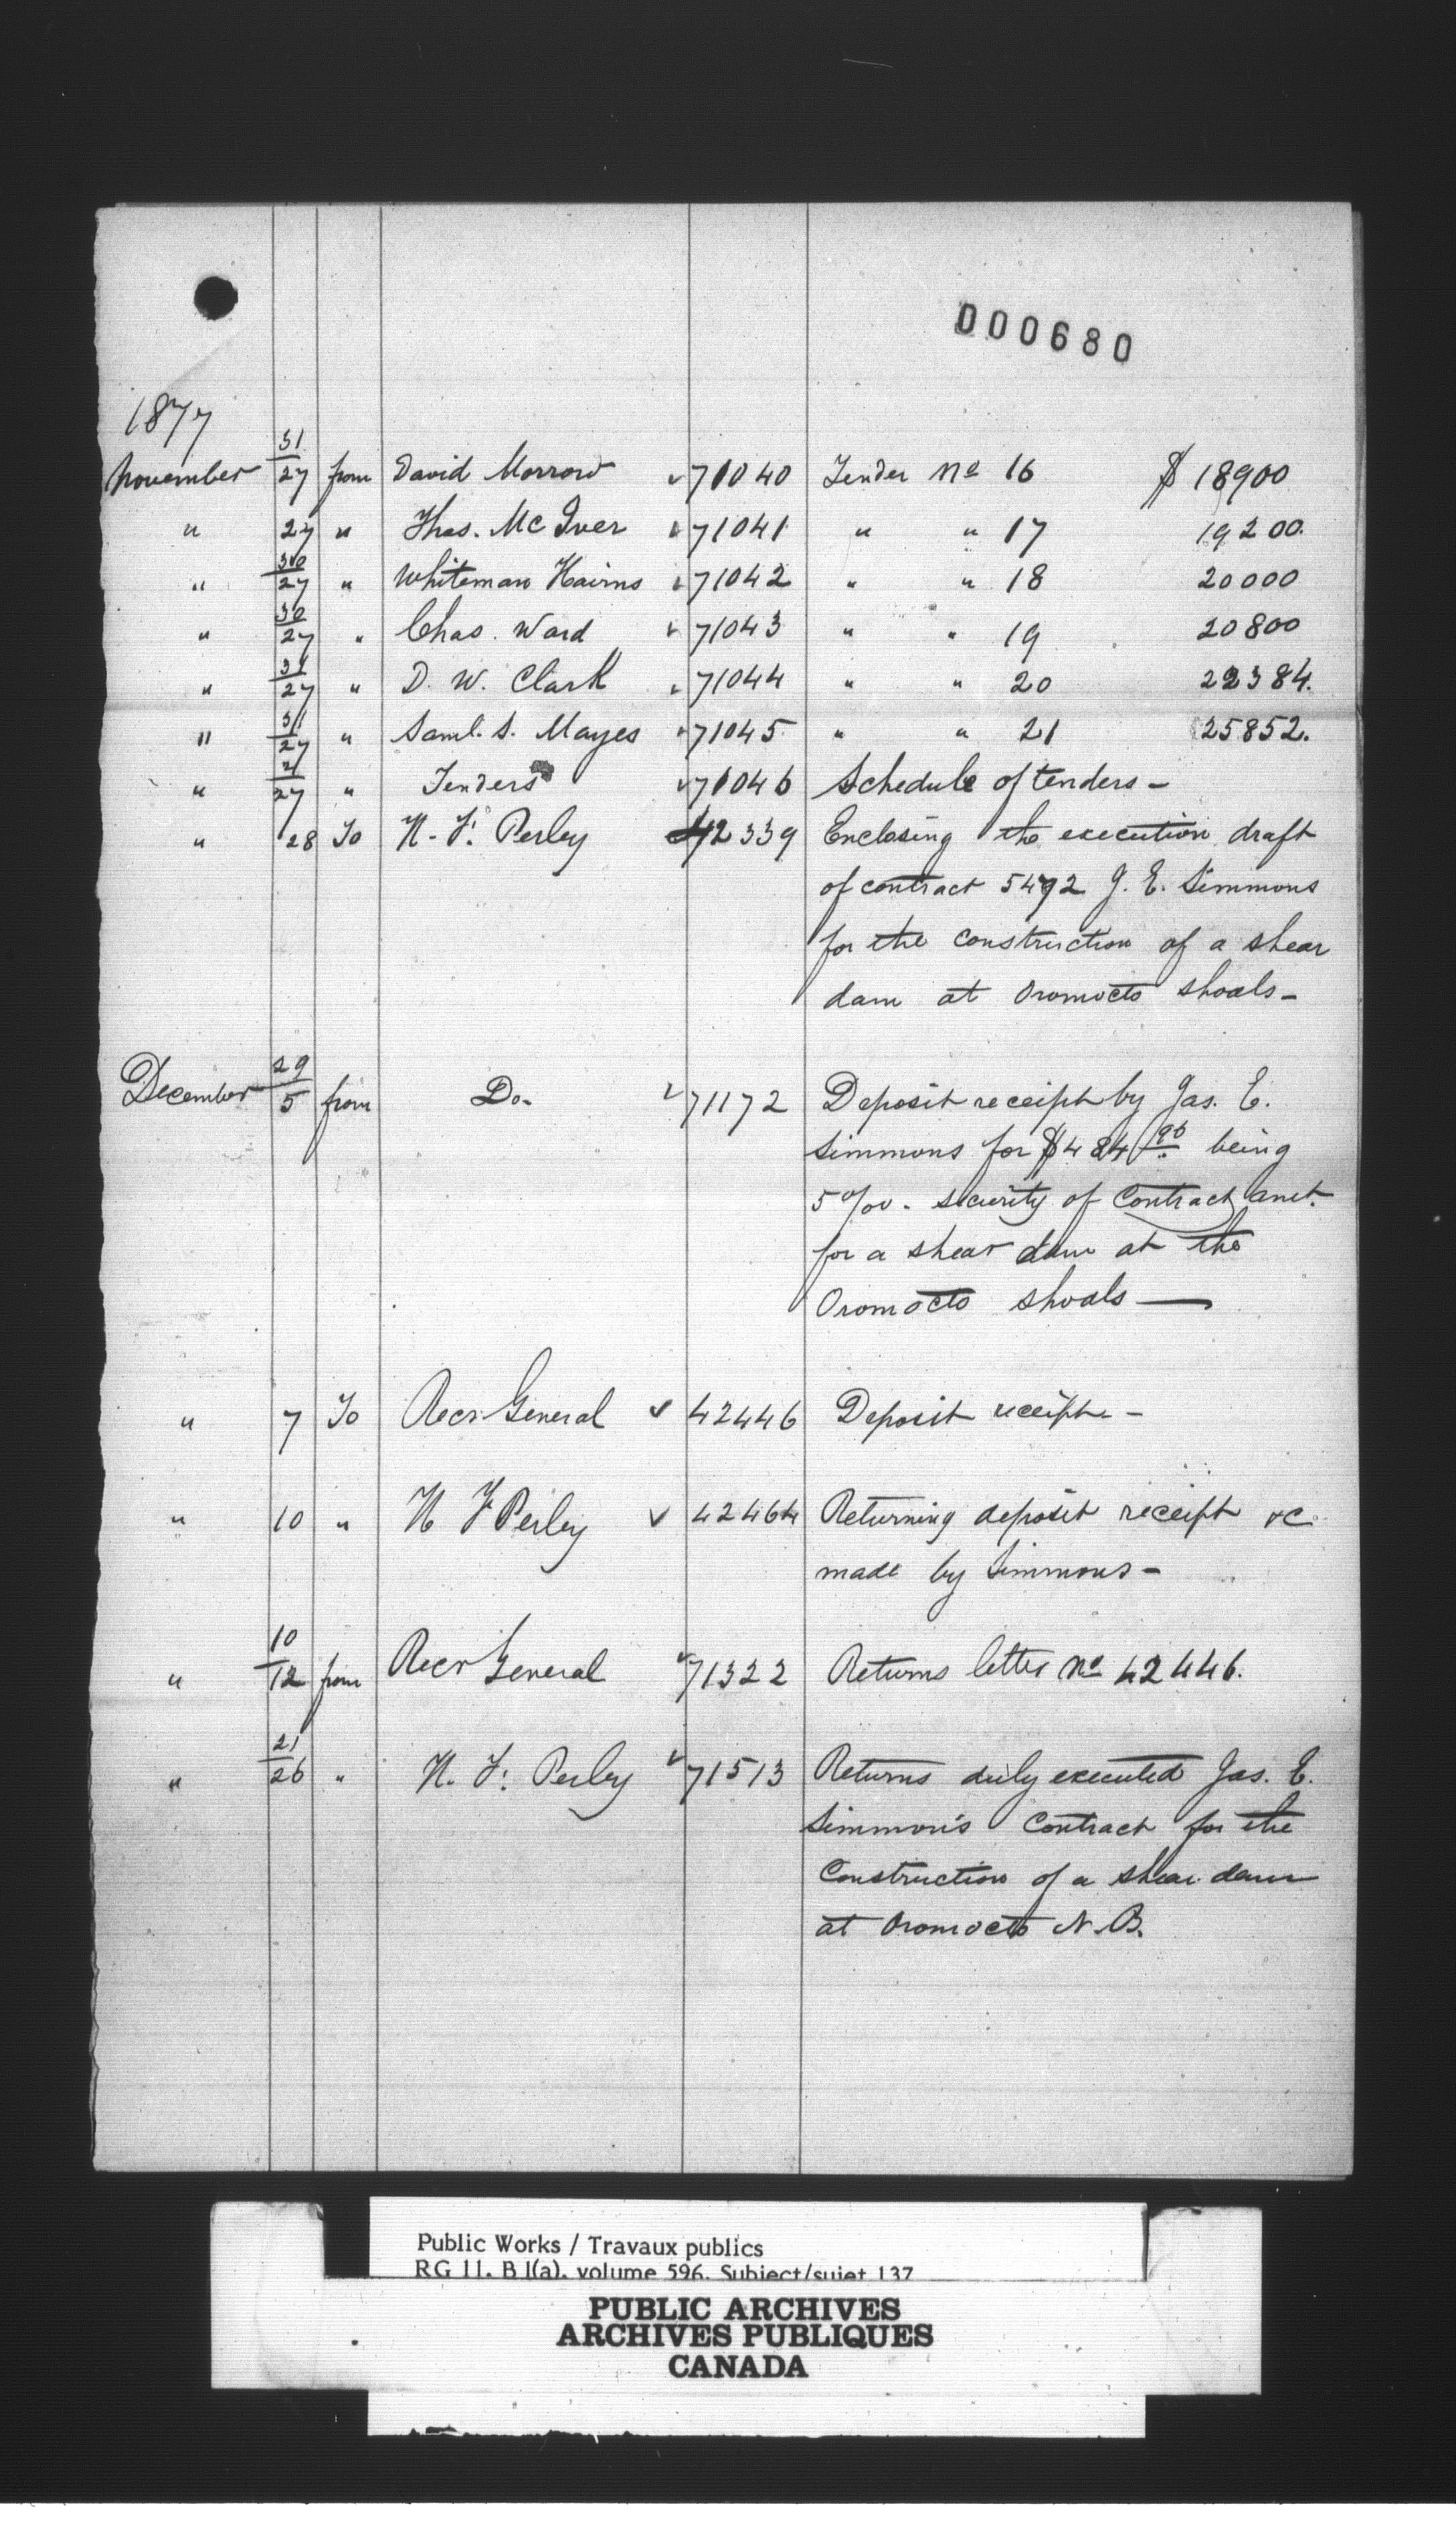 000680
1877
November 31/27 from David Morrow ✓ 71040 Tender No 16 $ 18900
" 27 " Thos. McIver ✓ 71041 " " 17 19200.
" 30/27 " Whiteman Kairns ✓ 71042 " " 18 20000
" 30/27 " Chas. Ward ✓ 71043 " " 19 20800
" 31/27 " D. W. Clark ✓ 71044 " " 20 22384.
" 31/27 " Saml. S. Mayes ✓ 71045 " " 21 25852.
" /27 " Tenders ✓ 71046 Schedule of tenders -
" 28 To H. F. Perley 42339 Enclosing the execution draft
of contract 5492 J. E. Simmons
for the construction of a shear
dam at Oromocto shoals -
December 29/5 from Do. ✓ 71172 Deposit receipt by Jas. E.
Simmons for $484 being
5 o/o. security of Contract amt.
for a shear dam at the
Oromocto shoals —
" 7 To Recr General ✓ 42446 Deposit receipt -
" 10 " H F Perley ✓ 42464 Returning deposit receipt &c
made by Simmons -
" 10/12 from Recr General ✓ 71322 Returns letter No 42446.
" 21/26 " H. F. Perley ✓ 71513 Returns duly executed Jas. E.
Simmon's Contract for the
Construction of a shear dam
at Oromocto N.B.
Public Works / Travaux publics
RG 11, B 1(a), volume 596, Subject/sujet 137
PUBLIC ARCHIVES
ARCHIVES PUBLIQUES
CANADA